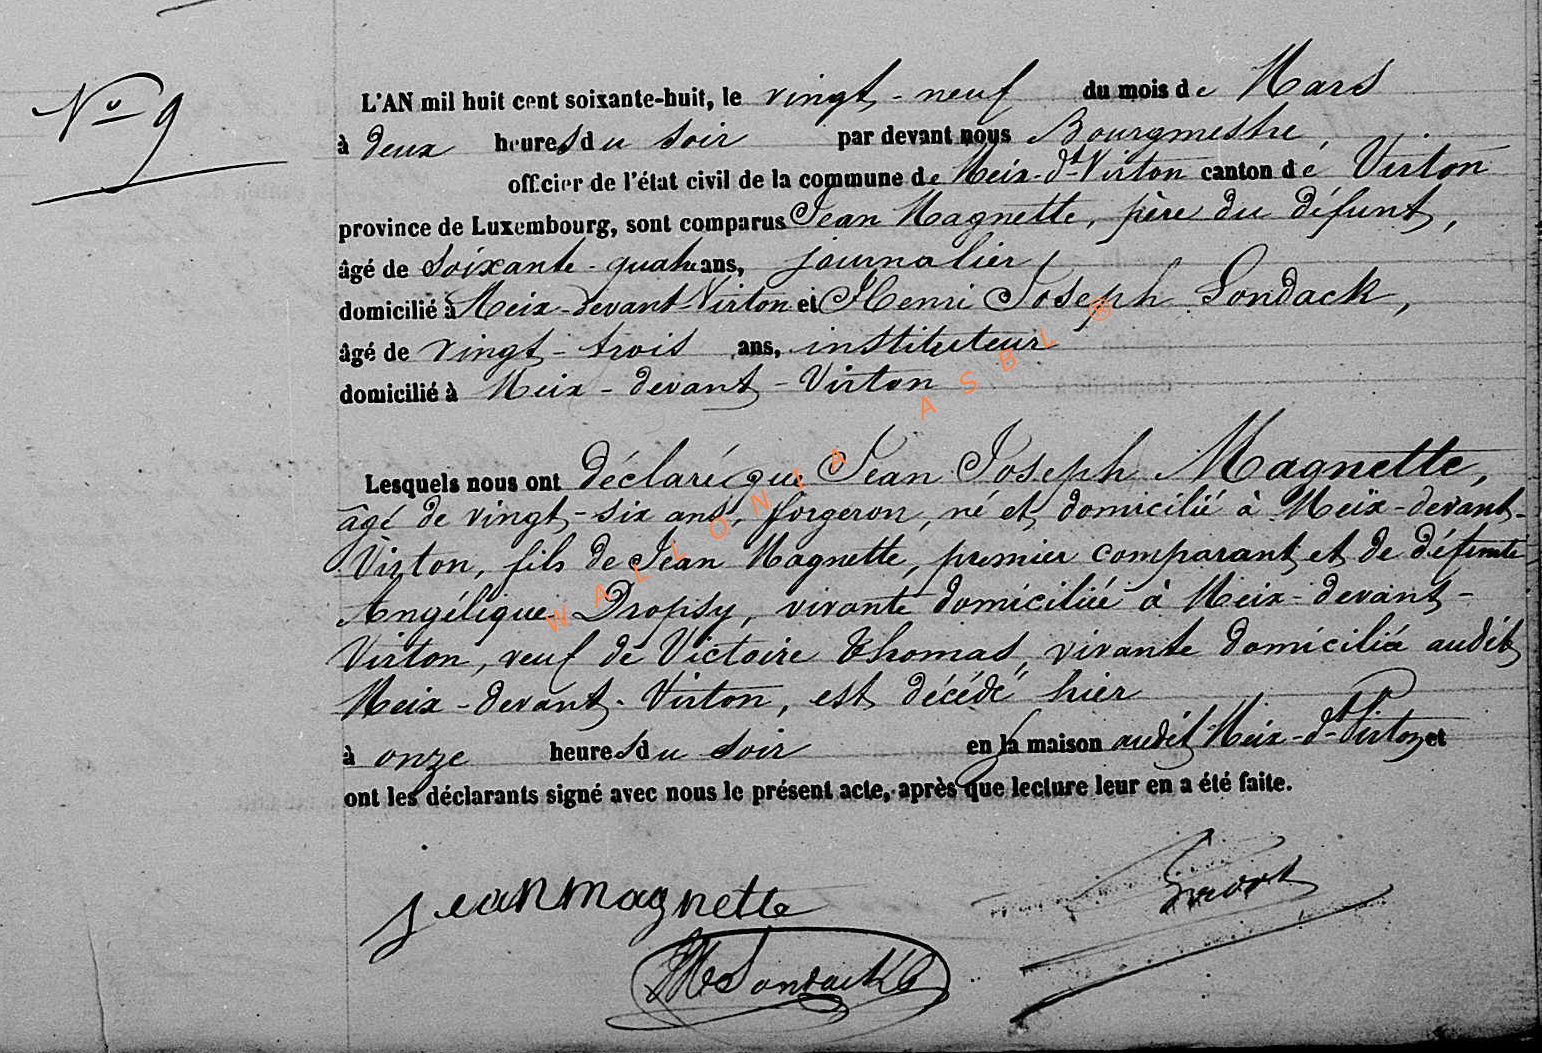 N° 9
L'AN mil huit cent soixante-huit, le vingt-neuf du mois de Mars
à deux heures du soir par devant nous Bourgmestre,
officier de l'état civil de la commune de Meix-dt-Virton canton de Virton
province de Luxembourg, sont comparus Jean Magnette, père du défunt,
âgé de soixante-quatre ans, journalier,
domicilié à Meix-devant-Virton et Henri Joseph Londack,
âgé de vingt-trois ans, instituteur
domicilié à Meix-devant-Virton
Lesquels nous ont déclaré que Jean Joseph Magnette,
âgé de vingt-six ans, forgeron, né et domicilié à Meix-devant-
Virton, fils de Jean Magnette, premier comparant et de défunte
Angélique Dropsy, vivante domiciliée à Meix-devant-
Virton, veuf de Victoire Thomas, vivante domiciliée audit
Meix-devant-Virton, est décédé hier
à onze heures du soir en la maison audit Meix-dt-Virton, et
ont les déclarants signé avec nous le présent acte, après que lecture leur en a été faite.
jean magnette
HJ Londack
WALLONIA ASBL ®